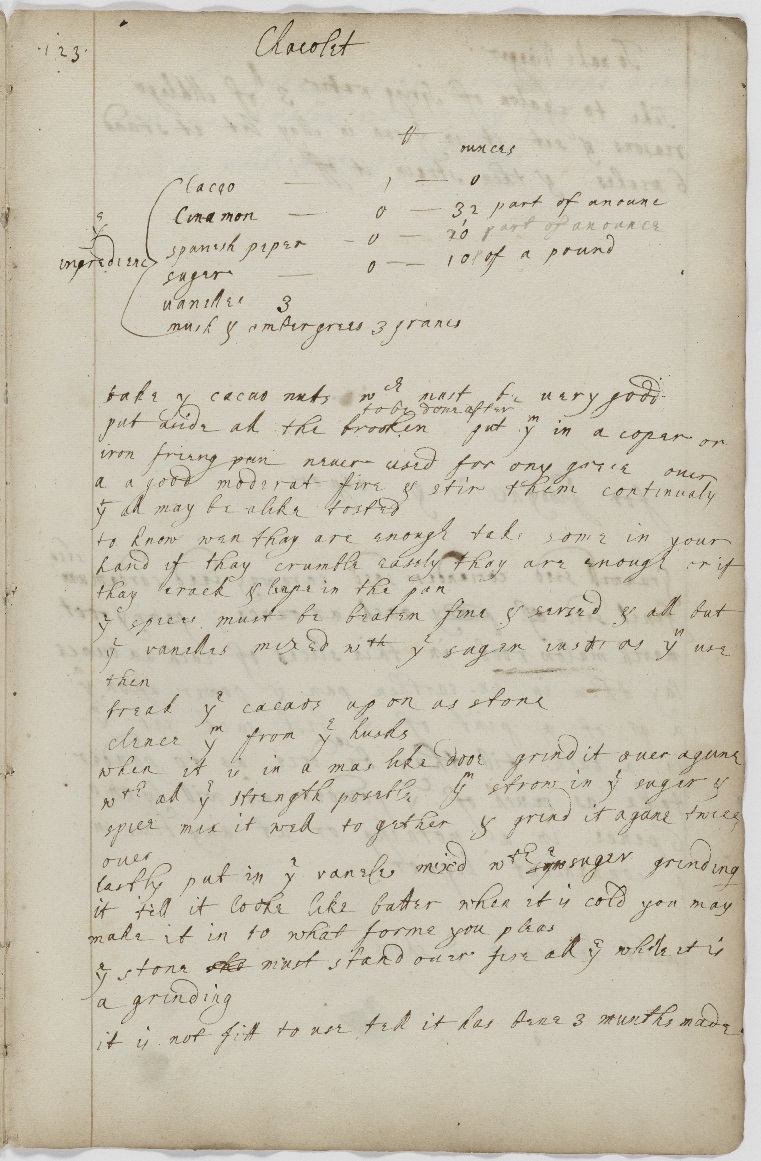 123
Chacolet
℔ ounces
Cacao — 1 — 0
Cinamon — 0 — 32 part of anounc
spanesh peper — 0 — 20 part of anounce
sugar — 0 — 10 of a pound
vanelles 3
musk & ambergrees 3 granes
yᵉ ingredienc
take yᵉ cacao nuts wᶜʰ must be uery good
to be done after
put aside all the brooken put yᵐ in a coper or
iron frieng pan never used for ony greec over
a a good moderat fire & stir them continualy
yᵗ all may be alike tosted
to know wen thay are enough take some in your
hand if thay crumble easely thay are enough or if
thay crack & leape in the pan
yᵉ spices must be beaten fine & searsed & all but
yᵉ vanelles mixed wᵗʰ yᵉ sugar iust as yᵘ use
them
break yᵉ cacaos up on as stone
clence yᵐ from yᵉ husks
when it is in a mas like dooe grind it over agane
wᵗʰ all yᵉ strength poseble yⁿ strow in yᵉ sugar &
spice mix it well to gether & grind it agane twice
over
lastly put in yᵉ vaneles mixed wᵗʰ sugar grinding
it tell it looke like batter when it is cold you may
make it in to what forme you pleas
yᵉ stone must stand over fire all yᵉ while it is
a grinding
it is not fitt to use tell it has bene 3 munths made